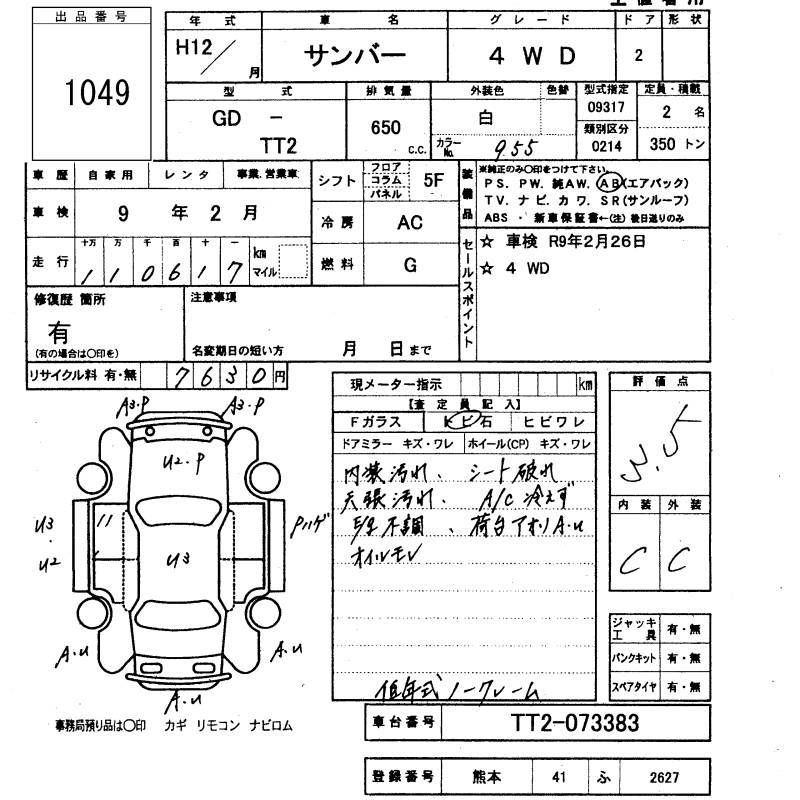 出品番号
1049
年式 車名 グレード ドア 形状
H12/ 月 サンバー 4WD 2
型式 排気量 外装色 色替 型式指定 定員・積載
GD - TT2 650 C.C. 白 09317 2 名
カラーNo. 955 類別区分 0214 350 トン
車歴 自家用 レンタ 事業.営業車 シフト フロア コラム パネル 5F
車検 9 年 2 月 冷房 AC
走行 十万 万 千 百 十 一 km マイル 燃料 G
1 1 0 6 1 7
装備品 ※純正のみ〇印をつけて下さい。
PS. PW. 純AW. AB(エアバック)
TV. ナビ. カワ. SR(サンルーフ)
ABS ・ 新車保証書←(注) 後日送りのみ
セールスポイント
☆ 車検 R9年2月26日
☆ 4 WD
修復歴 箇所 注意事項
有
(有の場合は〇印を) 名変期日の短い方 月 日まで
リサイクル料 有・無 7630円
現メーター指示 km
【査定員記入】
Fガラス トビ石 ヒビワレ
ドアミラー キズ・ワレ ホイール(CP) キズ・ワレ
内装汚れ、シート破れ
天張汚れ、A/C冷えず
不調、荷台アオリA.u
オイルモレ
低年式ノークレーム
評価点
3.5
内装 外装
C C
ジャッキ工具 有・無
パンクキット 有・無
スペアタイヤ 有・無
A3.P A3.P
U2.P
U3・U2
U3
Pハゲ
A.u A.u
A.u
事務局預り品は〇印 カギ リモコン ナビロム
車台番号 TT2-073383
登録番号 熊本 41 ふ 2627